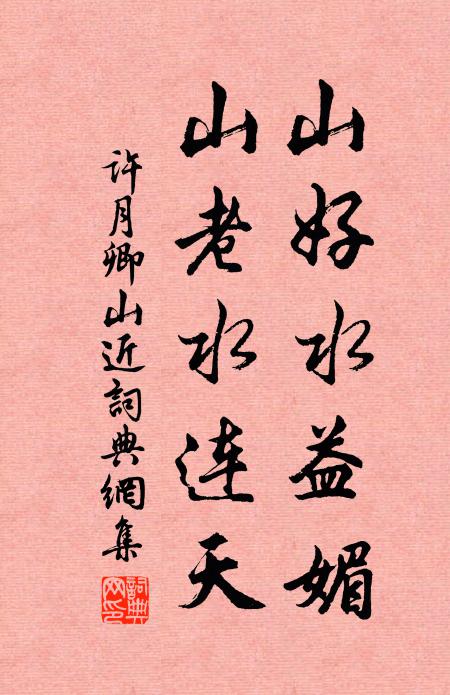 山好水益媚
山老水连天
许月卿山近詞典網集
詞典
网印